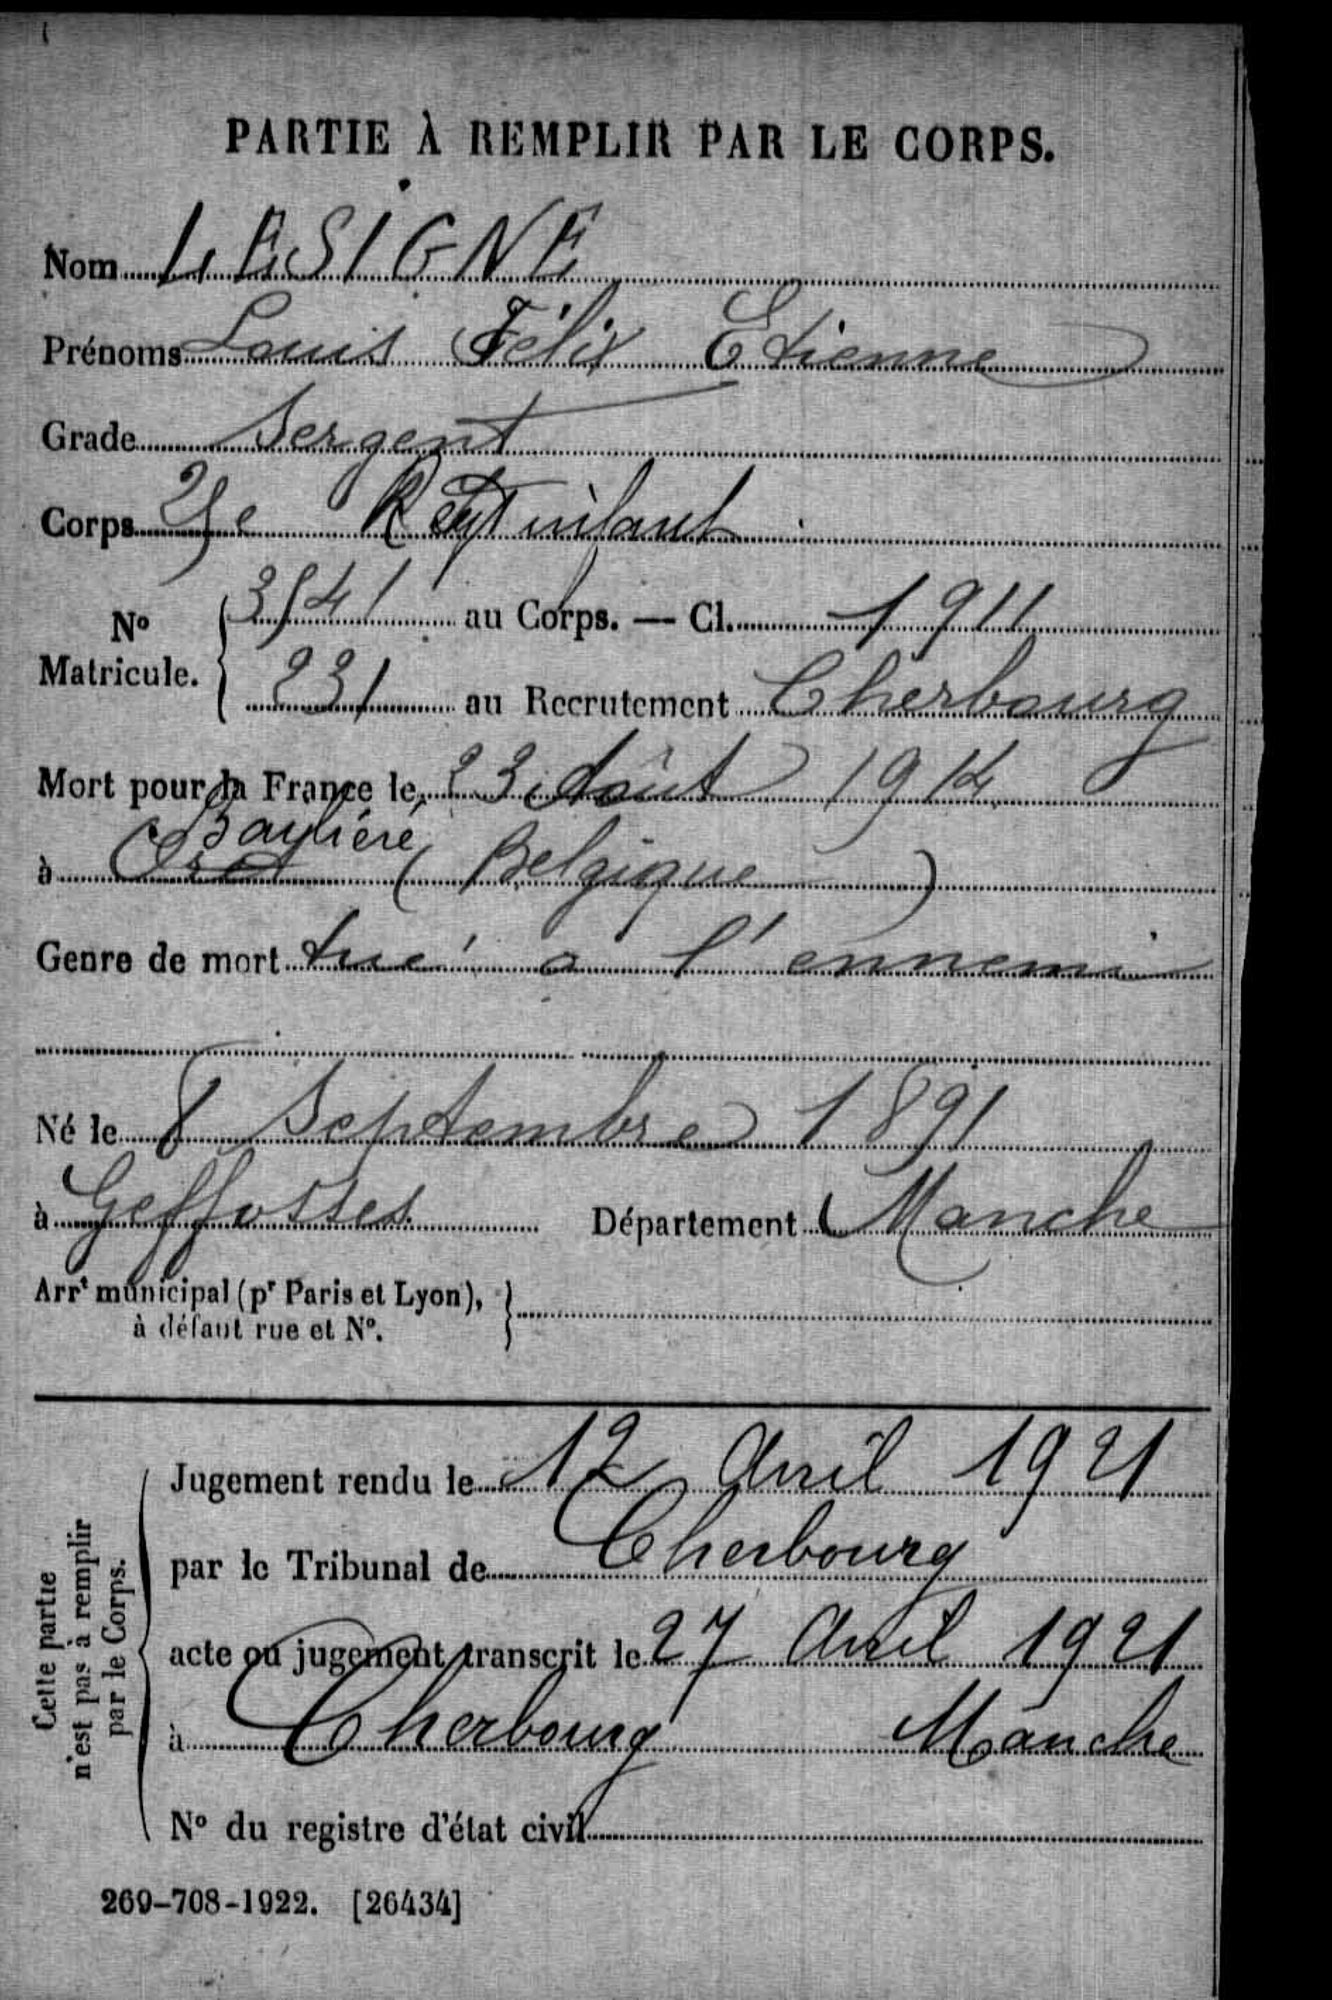 PARTIE À REMPLIR PAR LE CORPS.
Nom LESIGNE
Prénoms Louis Félix Etienne
Grade Sergent
Corps 25e Regt infant
No Matricule. 3541 au Corps. — Cl. 1911
231 au Recrutement Cherbourg
Mort pour la France le 23 Août 1914
Bayliéré
à (Belgique)
Genre de mort tué a l'ennemi
Né le 8 Septembre 1891
à Geffosses Département Manche
Arrt municipal (pr Paris et Lyon),
à défaut rue et No.
Cette partie
n'est pas à remplir
par le Corps.
Jugement rendu le 12 Avril 1921
par le Tribunal de Cherbourg
acte ou jugement transcrit le 27 Avril 1921
à Cherbourg Manche
No du registre d'état civil
269-708-1922. [26434]